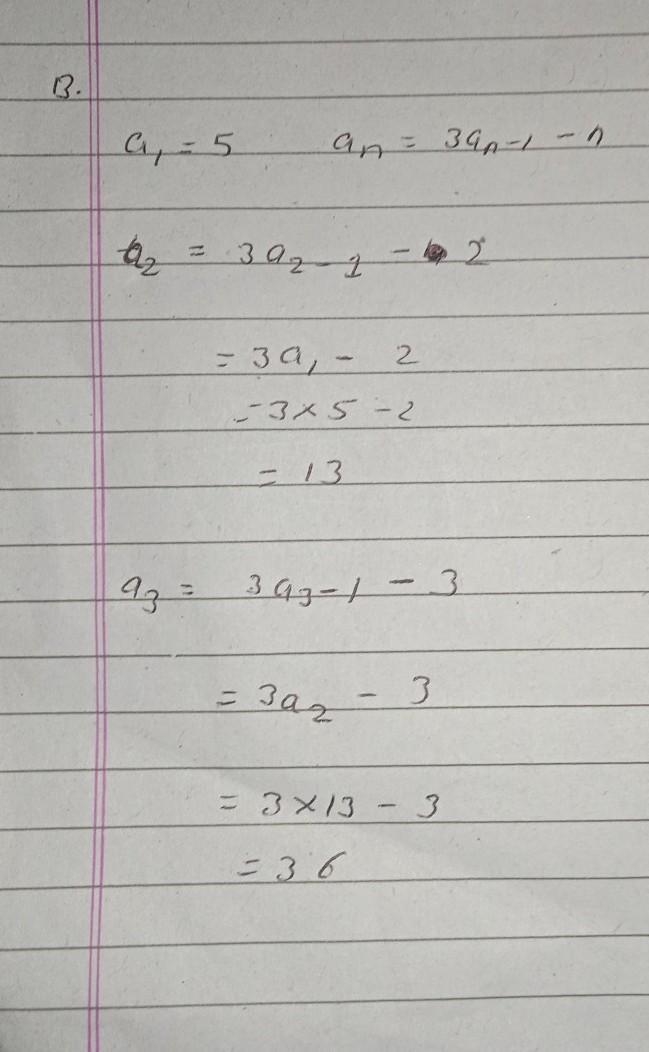 B.
a₁ = 5 aₙ = 3aₙ₋₁ - n
a₂ = 3a₂₋₁ - 2
= 3a₁ - 2
= 3 × 5 - 2
= 13
a₃ = 3a₃₋₁ - 3
= 3a₂ - 3
= 3 × 13 - 3
= 36